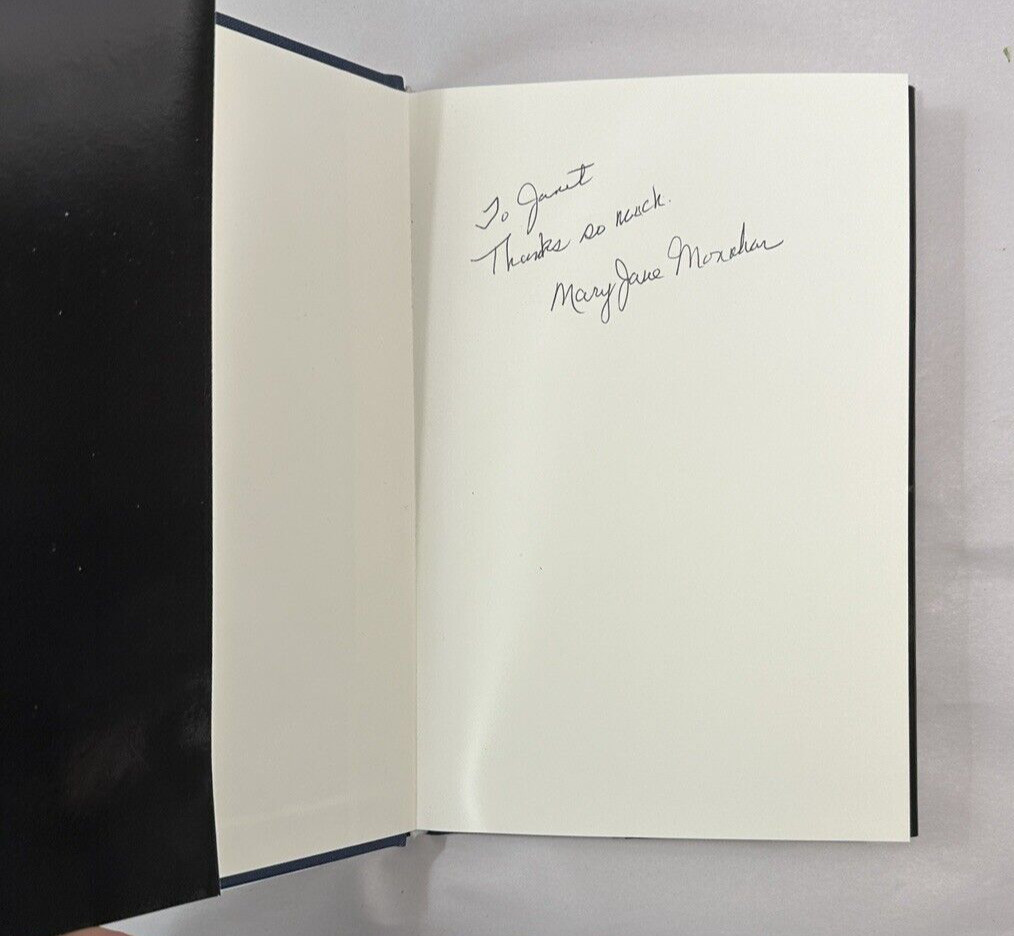 To Janet
Thanks so much.
Mary Jane Monahan